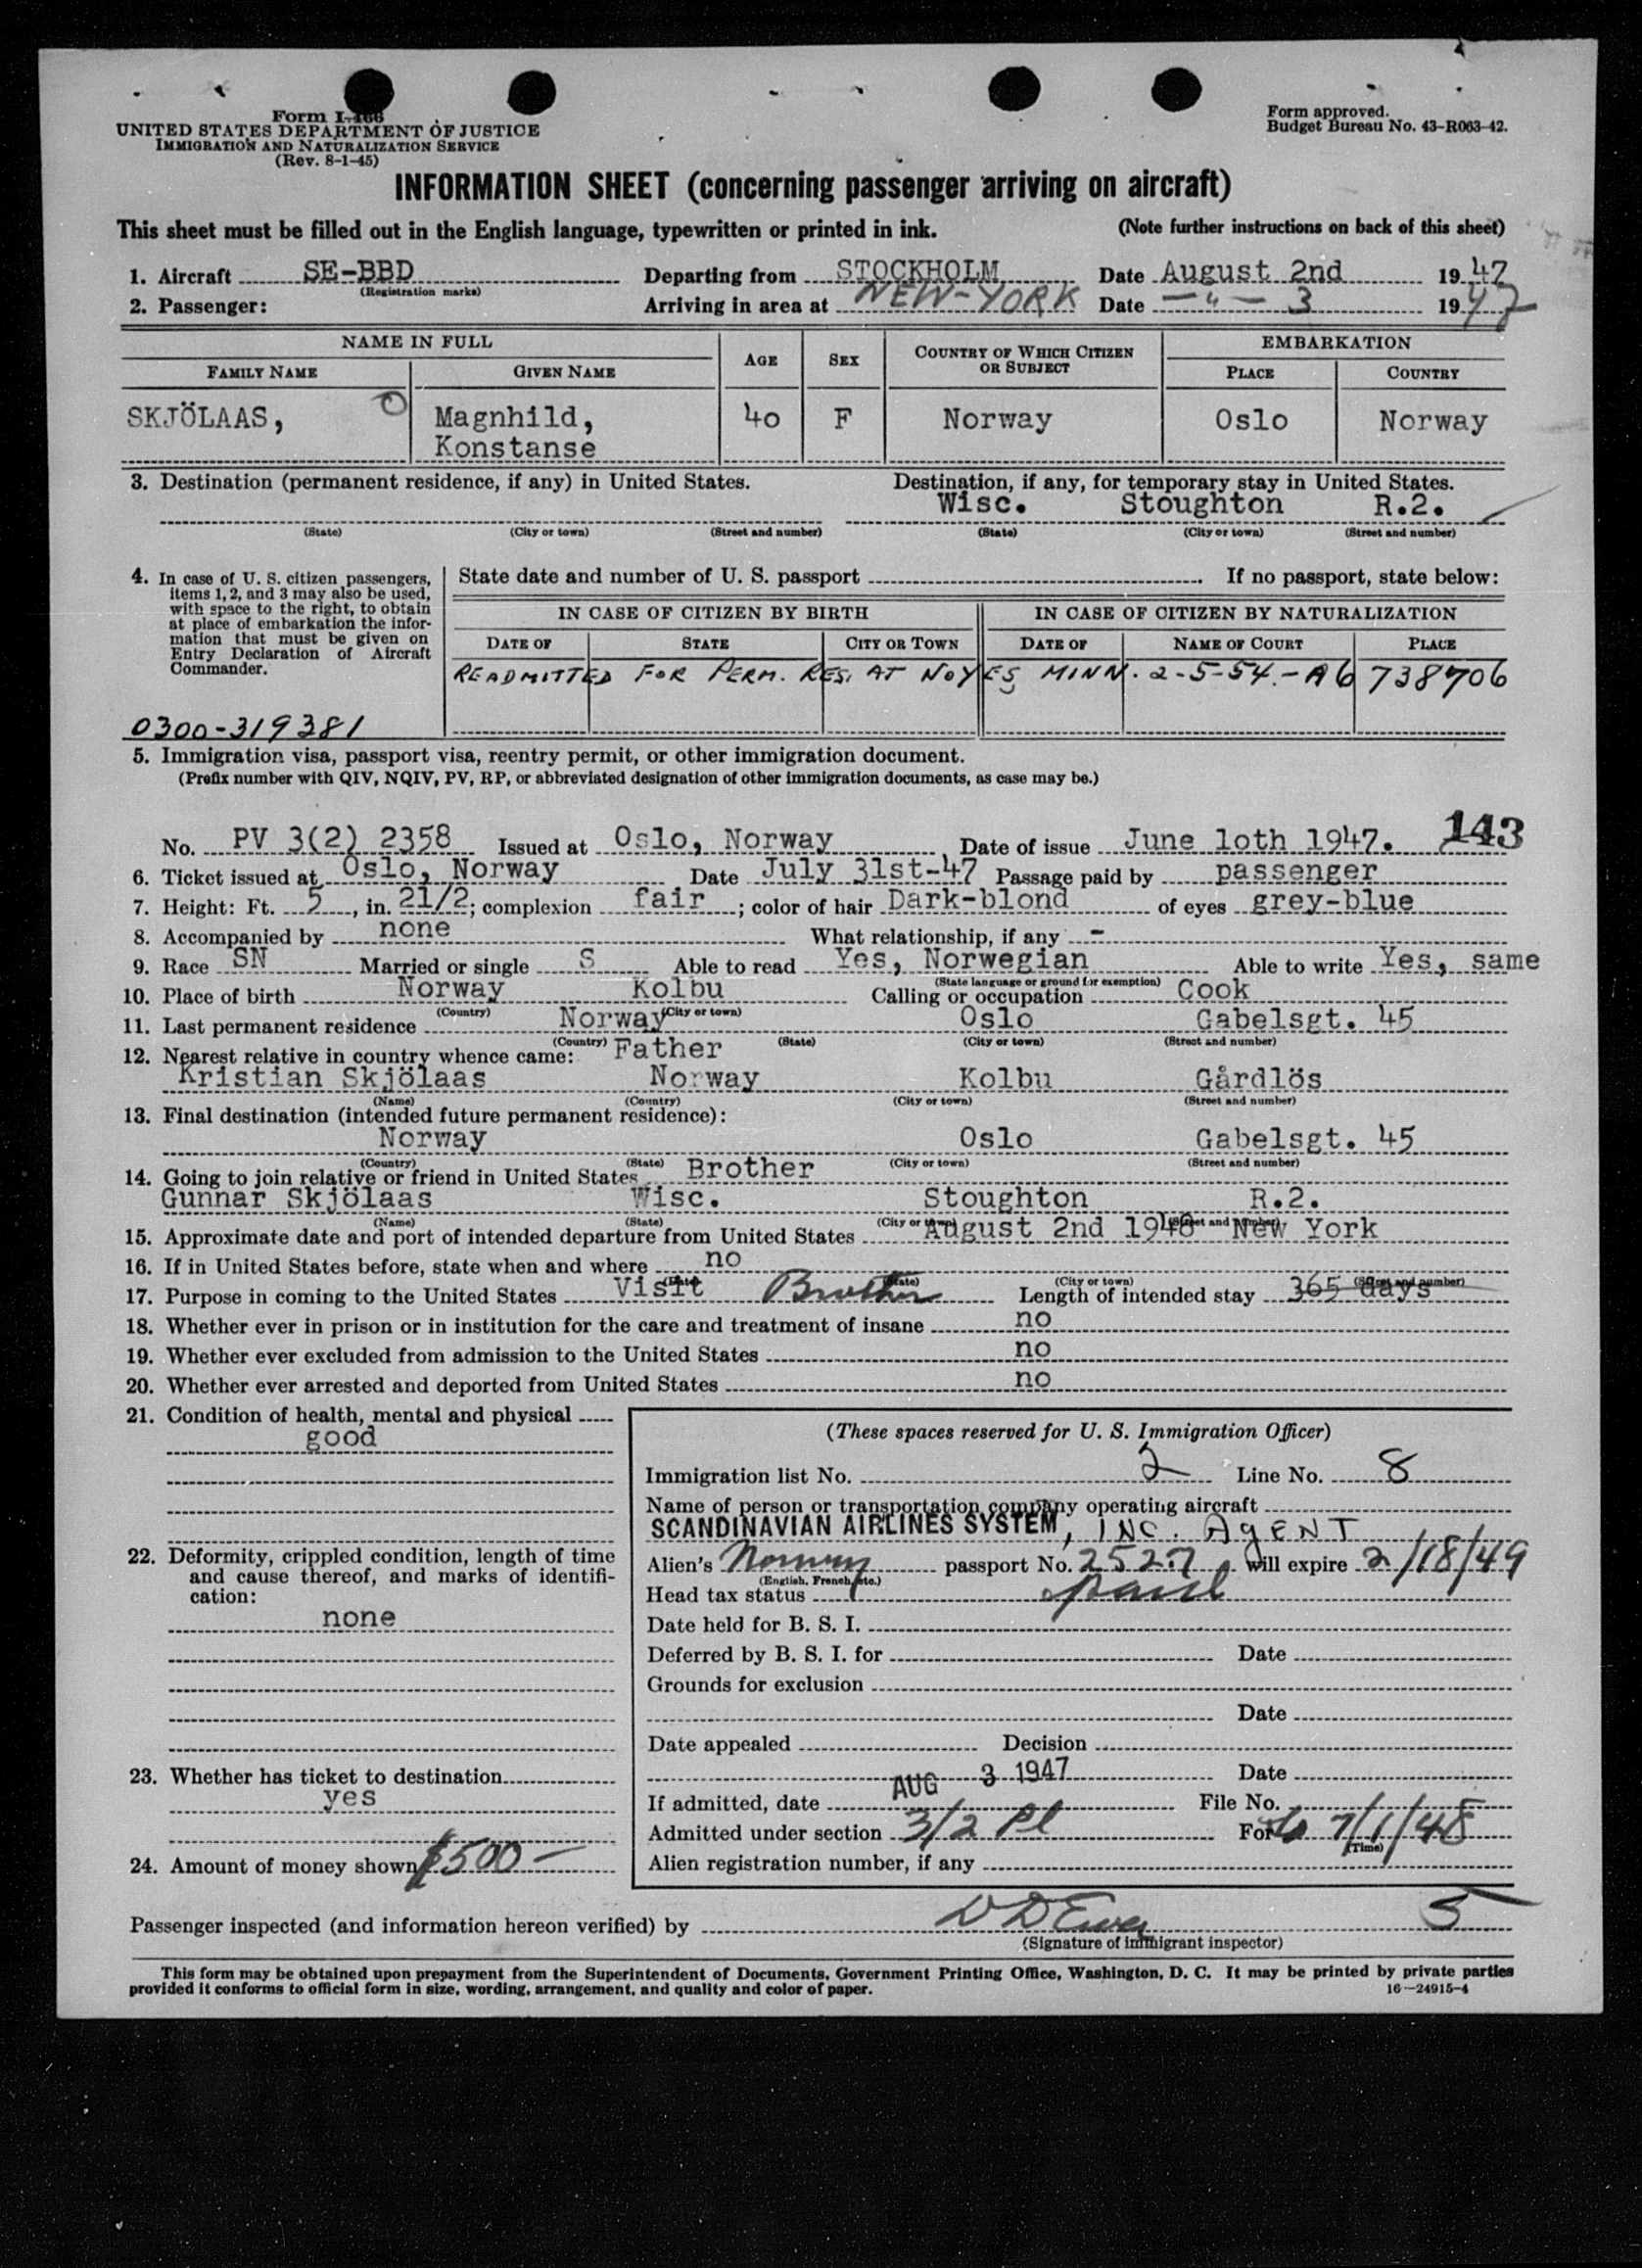 Form I-466
UNITED STATES DEPARTMENT OF JUSTICE
IMMIGRATION AND NATURALIZATION SERVICE
(Rev. 8-1-45)
Form approved.
Budget Bureau No. 43-R063-42.
INFORMATION SHEET (concerning passenger arriving on aircraft)
This sheet must be filled out in the English language, typewritten or printed in ink. (Note further instructions on back of this sheet)
1. Aircraft SE-BBD Departing from STOCKHOLM Date August 2nd 1947
(Registration marks)
2. Passenger: Arriving in area at NEW-YORK Date —"— 3 1947
NAME IN FULL AGE SEX COUNTRY OF WHICH CITIZEN OR SUBJECT EMBARKATION
FAMILY NAME GIVEN NAME PLACE COUNTRY
SKJÖLAAS, O Magnhild, 40 F Norway Oslo Norway
Konstanse
3. Destination (permanent residence, if any) in United States. Destination, if any, for temporary stay in United States.
Wisc. Stoughton R.2.
(State) (City or town) (Street and number) (State) (City or town) (Street and number)
4. In case of U. S. citizen passengers, items 1, 2, and 3 may also be used, with space to the right, to obtain at place of embarkation the information that must be given on Entry Declaration of Aircraft Commander.
State date and number of U. S. passport If no passport, state below:
IN CASE OF CITIZEN BY BIRTH IN CASE OF CITIZEN BY NATURALIZATION
DATE OF STATE CITY OR TOWN DATE OF NAME OF COURT PLACE
READMITTED FOR PERM. RES. AT NOYES MINN. 2-5-54.-A6 738706
0300-319381
5. Immigration visa, passport visa, reentry permit, or other immigration document.
(Prefix number with QIV, NQIV, PV, RP, or abbreviated designation of other immigration documents, as case may be.)
No. PV 3(2) 2358 Issued at Oslo, Norway Date of issue June loth 1947. 143
6. Ticket issued at Oslo, Norway Date July 31st-47 Passage paid by passenger
7. Height: Ft. 5, in. 21/2; complexion fair; color of hair Dark-blond of eyes grey-blue
8. Accompanied by none What relationship, if any -
9. Race SN Married or single S Able to read Yes, Norwegian Able to write Yes, same
(State language or ground for exemption)
10. Place of birth Norway Kolbu Calling or occupation Cook
(Country) (City or town)
11. Last permanent residence Norway Oslo Gabelsgt. 45
(Country) (State) (City or town) (Street and number)
12. Nearest relative in country whence came: Father
Kristian Skjölaas Norway Kolbu Gårdlös
(Name) (Country) (City or town) (Street and number)
13. Final destination (intended future permanent residence):
Norway Oslo Gabelsgt. 45
(Country) (State) (City or town) (Street and number)
14. Going to join relative or friend in United States Brother
Gunnar Skjölaas Wisc. Stoughton R.2.
(Name) (State) (City or town) (Street and number)
15. Approximate date and port of intended departure from United States August 2nd 1948 New York
16. If in United States before, state when and where no
(Date) (State) (City or town) (Street and number)
17. Purpose in coming to the United States Visit Brother Length of intended stay 365 days
18. Whether ever in prison or in institution for the care and treatment of insane no
19. Whether ever excluded from admission to the United States no
20. Whether ever arrested and deported from United States no
21. Condition of health, mental and physical
good
22. Deformity, crippled condition, length of time and cause thereof, and marks of identification:
none
23. Whether has ticket to destination
yes
24. Amount of money shown $500—
(These spaces reserved for U. S. Immigration Officer)
Immigration list No. 2 Line No. 8
Name of person or transportation company operating aircraft
SCANDINAVIAN AIRLINES SYSTEM, INC. AGENT
Alien's Norway passport No. 2527 will expire 2/18/49
(English, French, etc.)
Head tax status paid
Date held for B. S. I.
Deferred by B. S. I. for Date
Grounds for exclusion
Date
Date appealed Decision
Date
If admitted, date AUG 3 1947 File No.
Admitted under section 3/2 Pl For to 7/1/48
(Time)
Alien registration number, if any
Passenger inspected (and information hereon verified) by 5
(Signature of immigrant inspector)
This form may be obtained upon prepayment from the Superintendent of Documents, Government Printing Office, Washington, D. C. It may be printed by private parties
provided it conforms to official form in size, wording, arrangement, and quality and color of paper. 16—24915-4